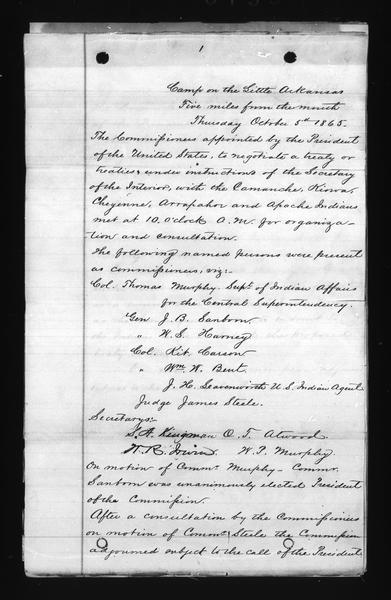 1
Camp on the Little Arkansas
Five miles from the mouth
Thursday October 5th 1865.
The Commissioners appointed by the President
of the United States, to negotiate a treaty or
treaties, under instructions of the Secretary
of the Interior, with the Camanche, Kiowa,
Cheyenne, Arrapahor and Apache Indians
met at 10, O'clock A.M. for organiza-
tion and consultation.
The following named persons were present
as commissioners, viz:-
Col. Thomas Murphy Supt. of Indian Affairs
for the Central Superintendency.
Gen J. B. Sanborn
" W. S. Harney
Col. Kit. Carson
" Wm. W. Bent.
J. H. Leavenworth U.S. Indian Agent
Judge James Steele.
Secretarys:-
S. A. Kingman O. T. Atwood
W. R. Irwin W. P. Murphy
On motion of Commr. Murphy - Commr.
Sanborn was unanimously elected President
of the Commission.
After a consultation by the Commissioners
on motion of Commr. Steele the Commission
adjourned subject to the call of the President